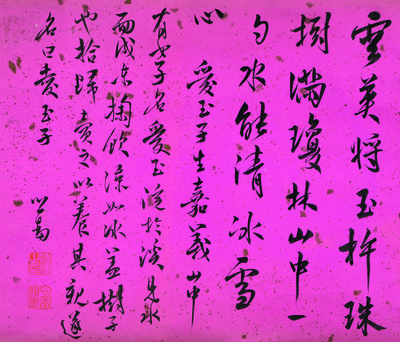 雲英將玉杵珠
樹滿瓊林山中一
勺水能清冰雪
心
愛玉子生嘉義山中
有女子名愛玉 於溪見水
面成凍掬飲涼如冰蓋樹子
也拾歸賣之以養其親遂
名曰愛玉子
心畬